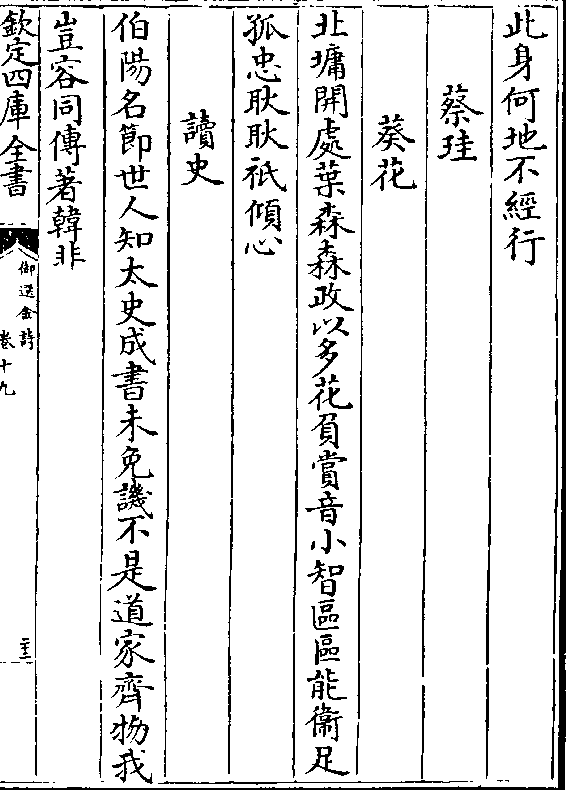 此身何地不經行
蔡珪
葵花
北墉開處葉森森政以多花負賞音小智區區能衞足
孤忠耿耿祇傾心
讀史
伯陽名節世人知太史成書未免譏不是道家齊物我
豈容同傳著韓非
欽定四庫全書
御選金詩
卷十九